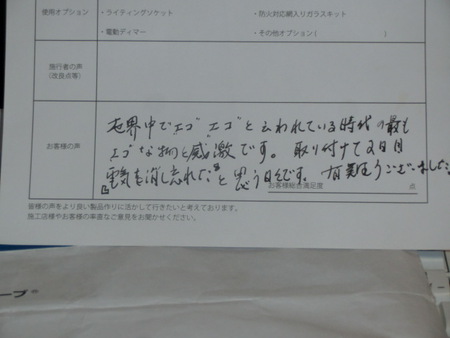 使用オプション
・ライティングソケット
・防火対応網入りガラスキット
・電動ディマー
・その他オプション( )
施行者の声
(改良点等)
お客様の声
世界中で"エゴ""エゴ"と云われている時代の最も
エゴな物と感激です。取り付けて2日目
『電気も消し忘れた』と思う日々です。有難うございました。
お客様総合満足度 点
皆様の声をより良い製品作りに活かして行きたいと考えております。
施工店様やお客様の率直なご意見をお聞かせください。
ープ®